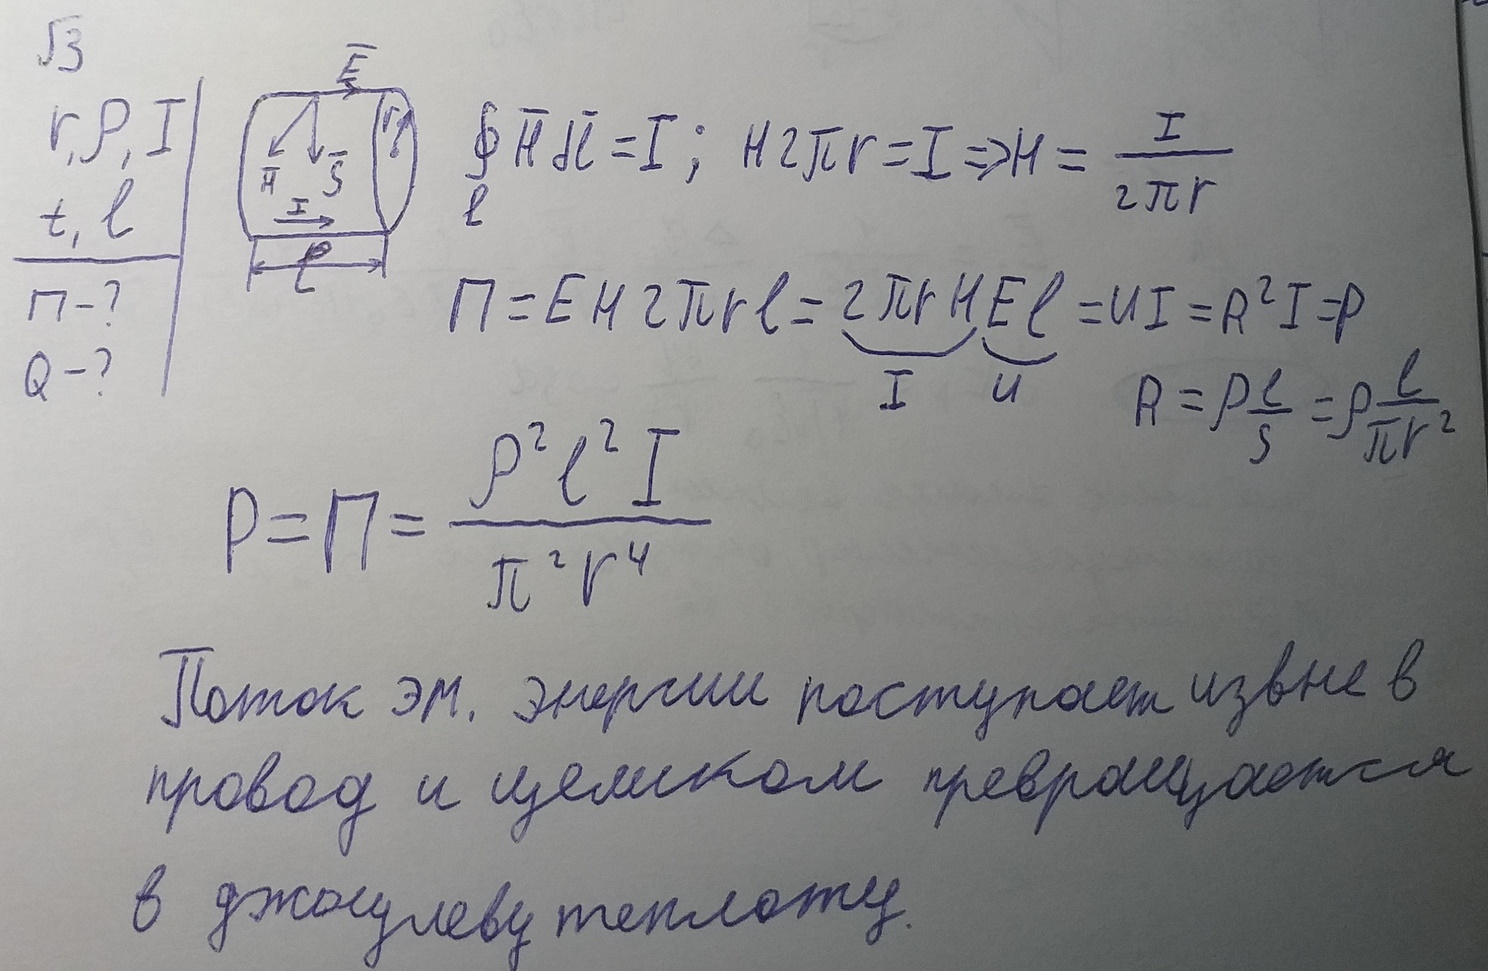 √3
r, ρ, I
t, l
П-?
Q-?
E̅
r
H̅ S̅
I
l
∮ₗ H̅ dl̅ = I; H2πr = I => H = I/2πr
П = EH2πrl = 2πrHEl = UI = R²I = P
I U
R = ρ l/S = ρ l/πr²
P = П = ρ²l²I/π²r⁴
Поток эм. энергии поступает извне в
провод и целиком превращается
в джоулеву теплоту.